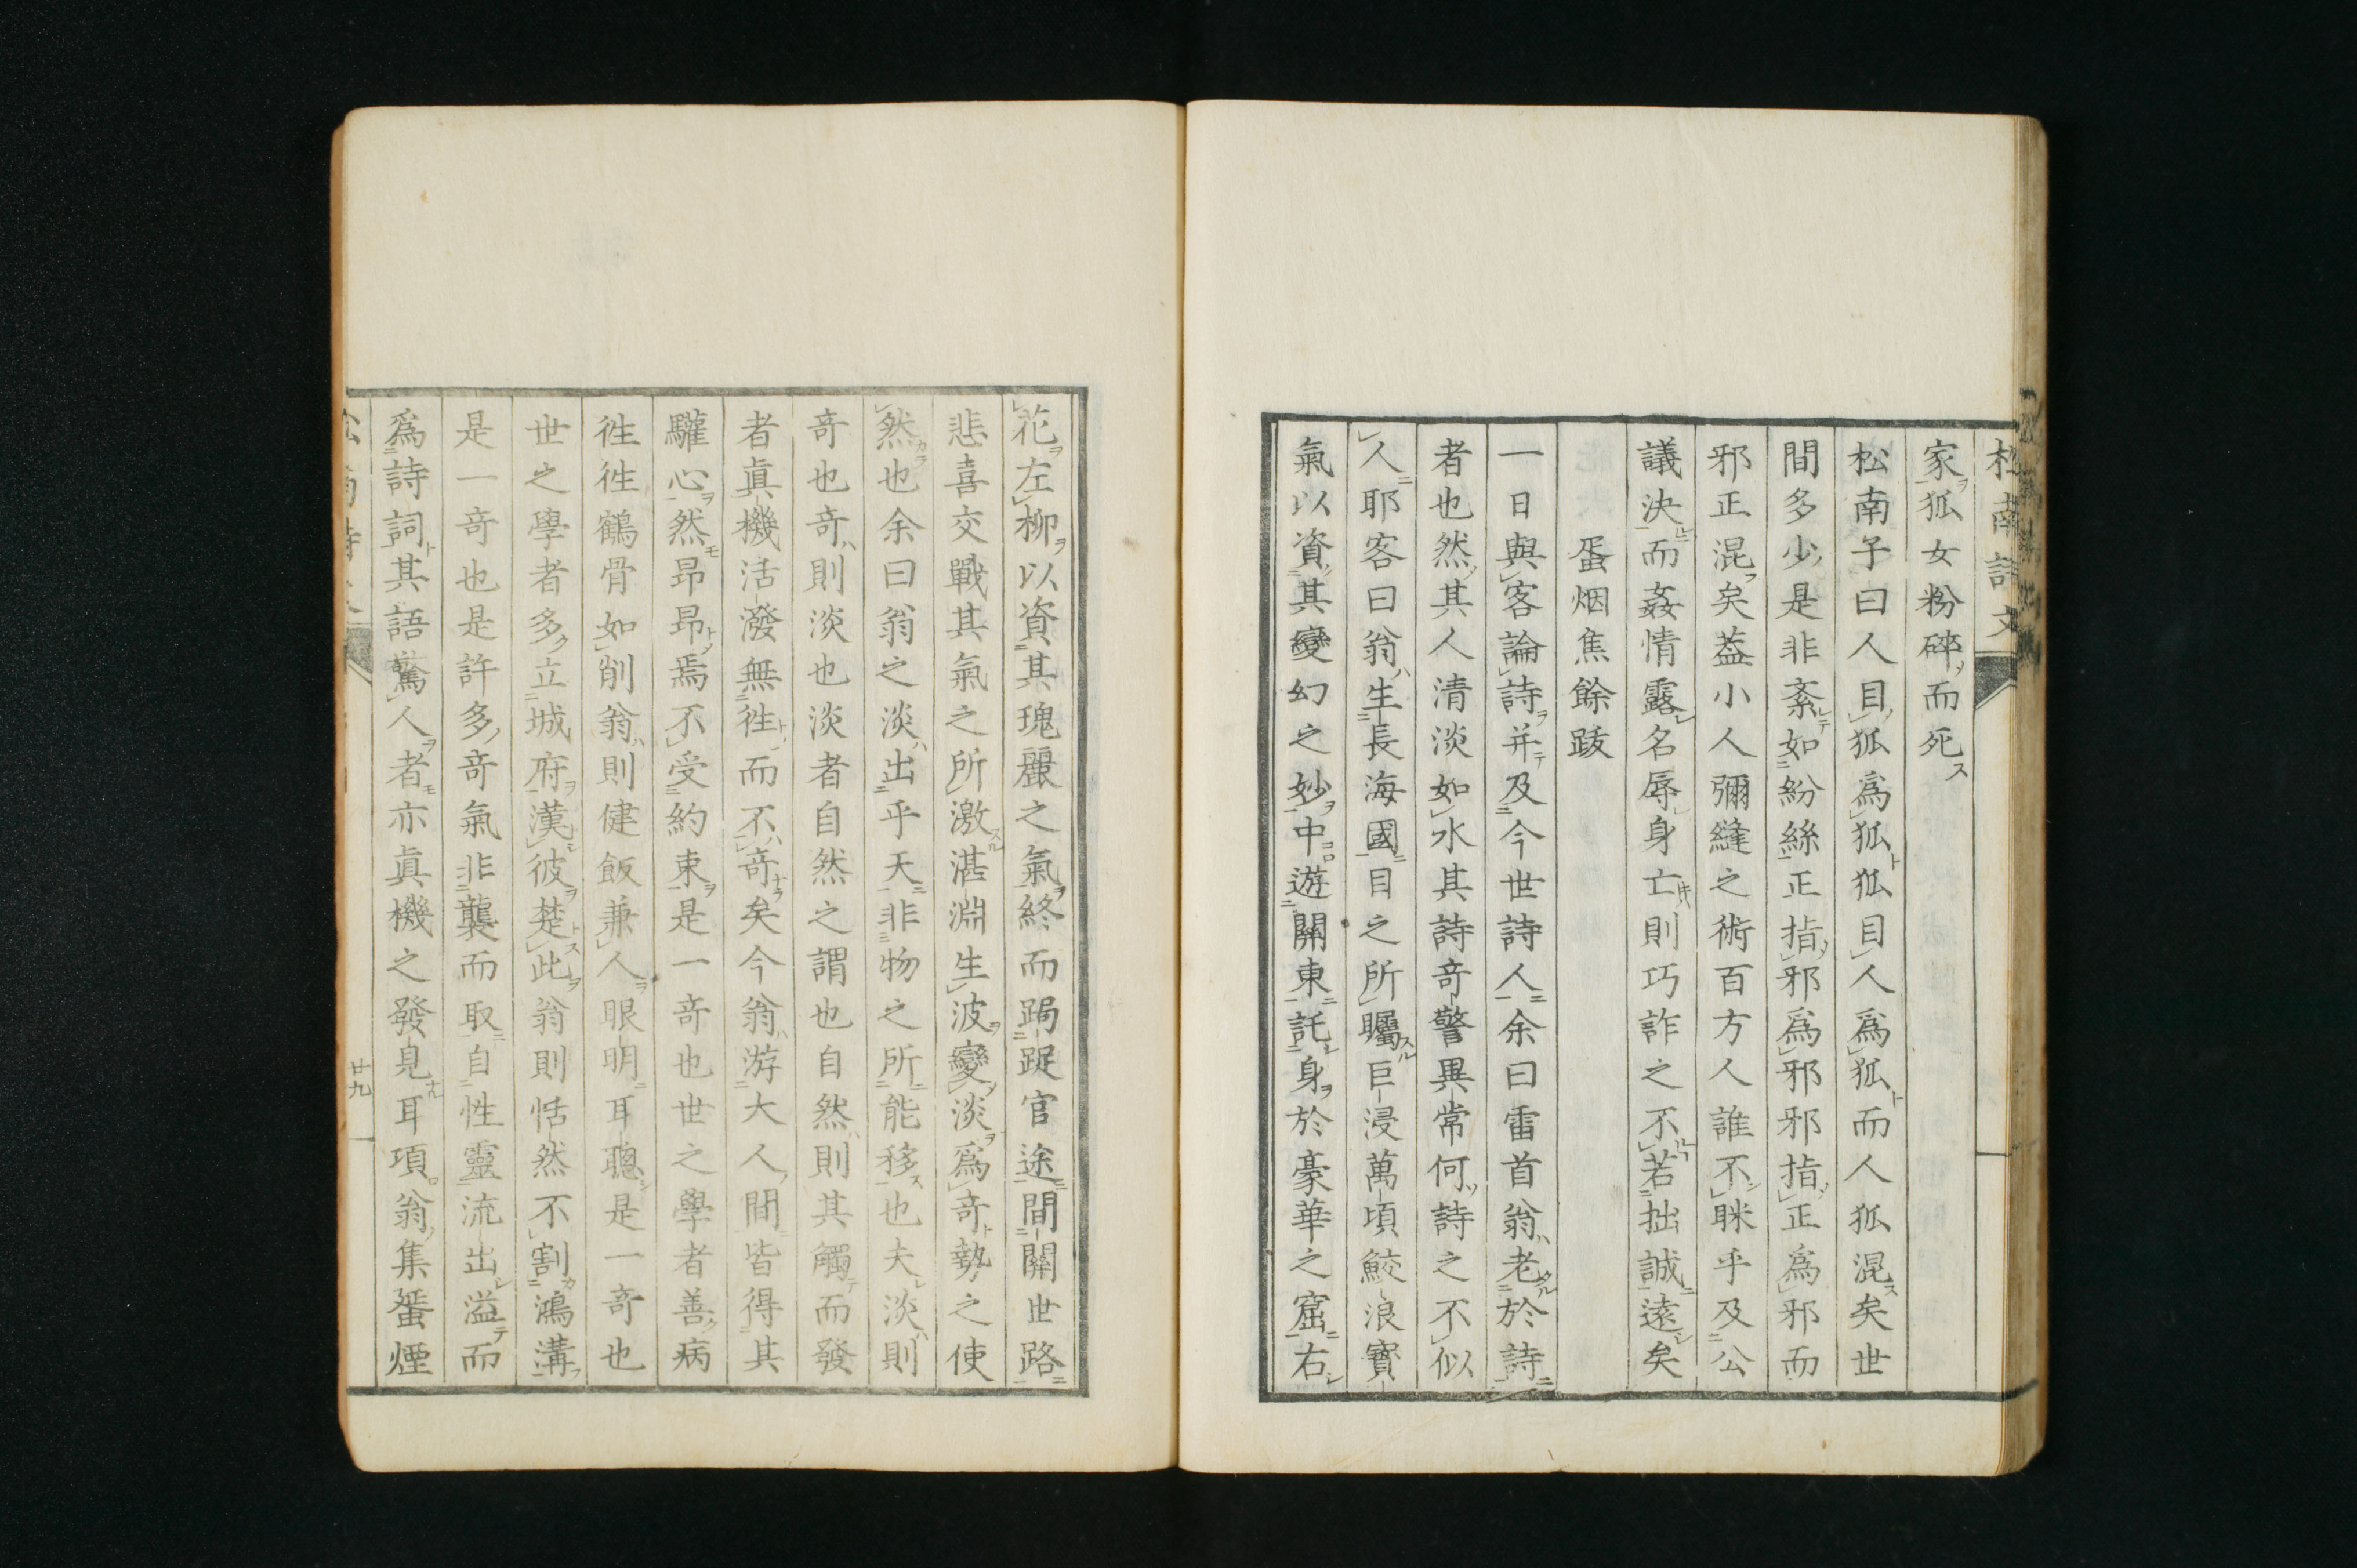 松南詩文
家狐女粉碎而死
松南子曰人目狐爲狐狐目人爲狐而人狐混矣世
間多少是非紊如紛絲正指邪爲邪邪指正爲邪而
邪正混矣蓋小人彌縫之術百方人誰不眯乎及公
議決而姦情露名辱身亡則巧詐之不若拙誠遠矣
蛋烟焦餘跋
一日與客論詩并及今世詩人余曰雷首翁老於詩
者也然其人清淡如水其詩奇警異常何詩之不似
人耶客曰翁生長海國目之所矚巨浸萬頃鮫浪寶
氣以資其變幻之妙中遊關東託身於豪華之窟右
花左柳以資其瑰麗之氣終而跼踀官途間關世路
悲喜交戰其氣之所激湛淵生波變淡爲奇勢之使
然也余曰翁之淡出乎天非物之所能移也夫淡則
奇也奇則淡也淡者自然之謂也自然則其觸而發
者眞機活潑無徃而不奇矣今翁游大人間皆得其
驩心然昂昂焉不受約束是一奇也世之學者善病
徃徃鶴骨如削翁則健飯兼人眼明耳聰是一奇也
世之學者多立城府漢彼楚此翁則恬然不割鴻溝
是一奇也是許多奇氣非襲而取自性靈流出溢而
爲詩詞其語驚人者亦眞機之發見耳項翁集蛋煙
廿九